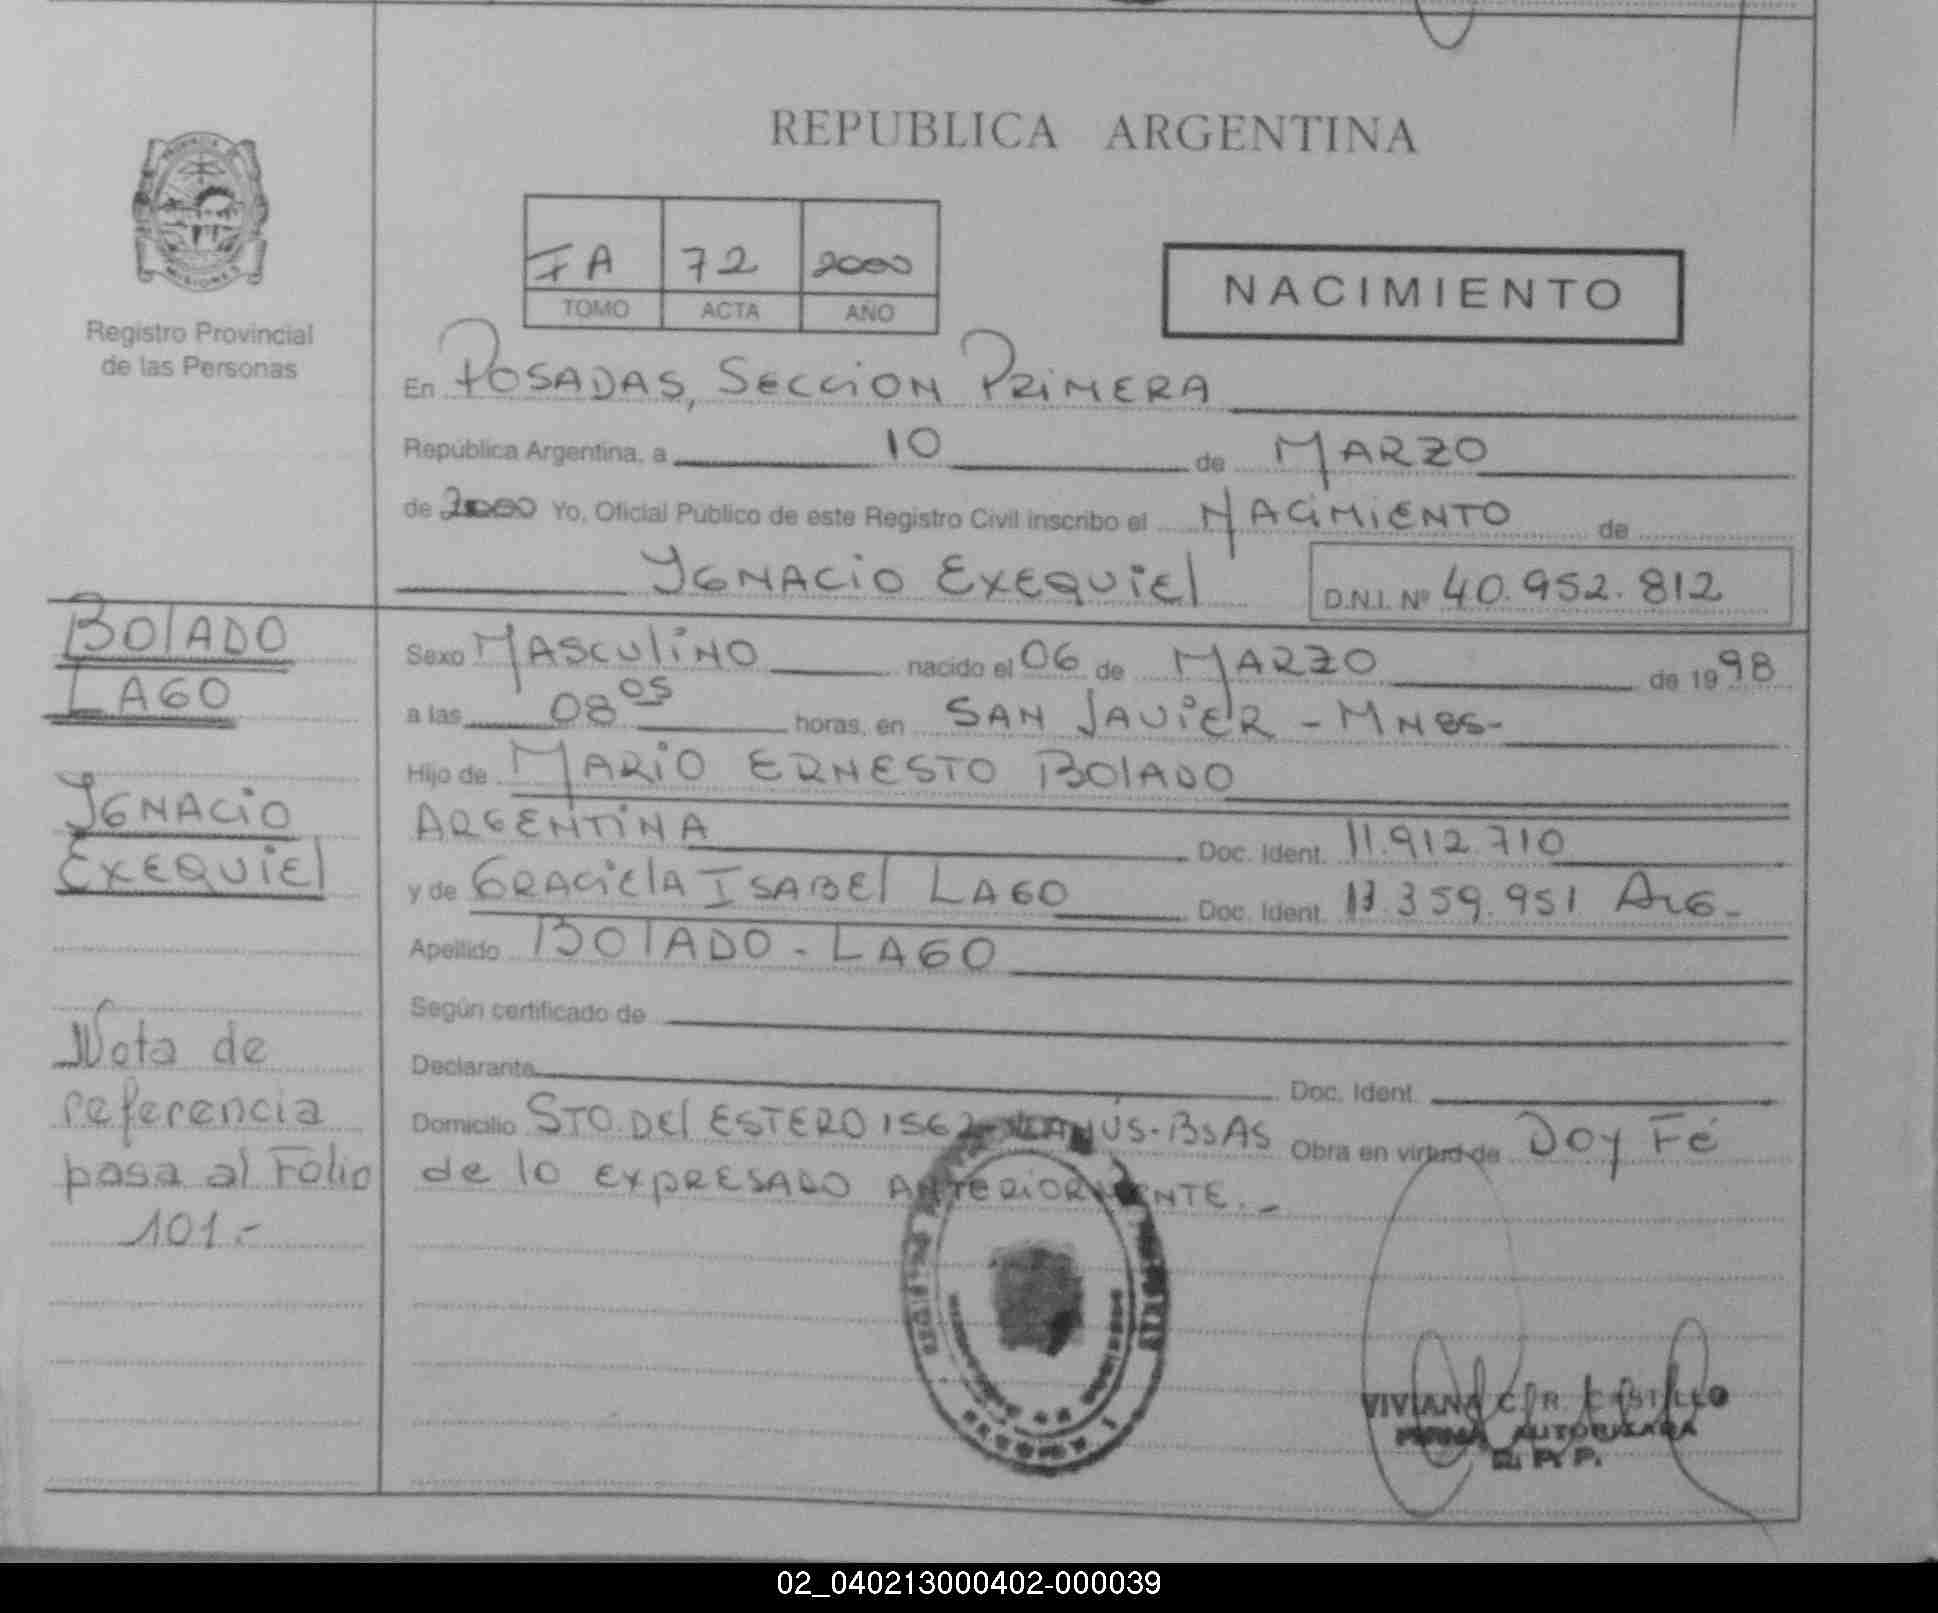 REPUBLICA ARGENTINA
Registro Provincial
de las Personas
FA 72 2000
TOMO ACTA AÑO
NACIMIENTO
En POSADAS, SECCION PRIMERA
República Argentina, a 10 de MARZO
de 2000 Yo, Oficial Público de este Registro Civil inscribo el NACIMIENTO de
IGNACIO EXEQUIEL D.N.I. Nº 40.952.812
BOLADO
LAGO
IGNACIO
EXEQUIEL
Nota de
referencia
pasa al Folio
101.-
Sexo MASCULINO nacido el 06 de MARZO de 1998
a las 08 05 horas, en SAN JAVIER - MNES-
Hijo de MARIO ERNESTO BOLADO
ARGENTINA Doc. Ident. 11.912.710
y de GRACIELA ISABEL LAGO Doc. Ident. .359.951 ARG-
Apellido BOLADO - LAGO
Según certificado de
Declarante Doc. Ident.
Domicilio STO. DEL ESTERO 1562 LANÚS-BSAS Obra en virtud de DOY FÉ
de lo EXPRESADO ANTERIORMENTE.-
VIVIANA C. R. CASTILLO
FIRMA AUTORIZADA
R. P. P.
02_040213000402-000039